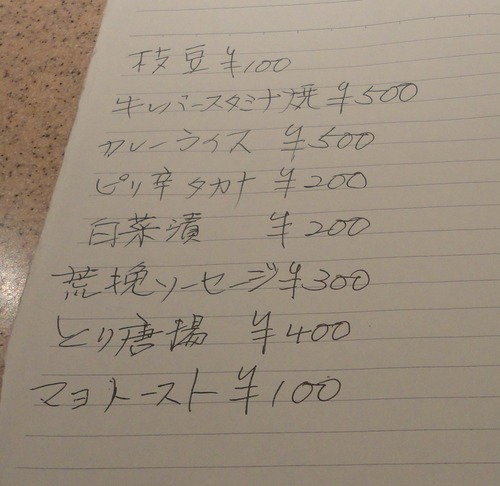 枝豆 ¥100
牛レバースタミナ焼 ¥500
カレーライス ¥500
ピリ辛タカナ ¥200
白菜漬 ¥200
荒挽ソーセージ ¥300
とり唐揚 ¥400
マヨトースト ¥100